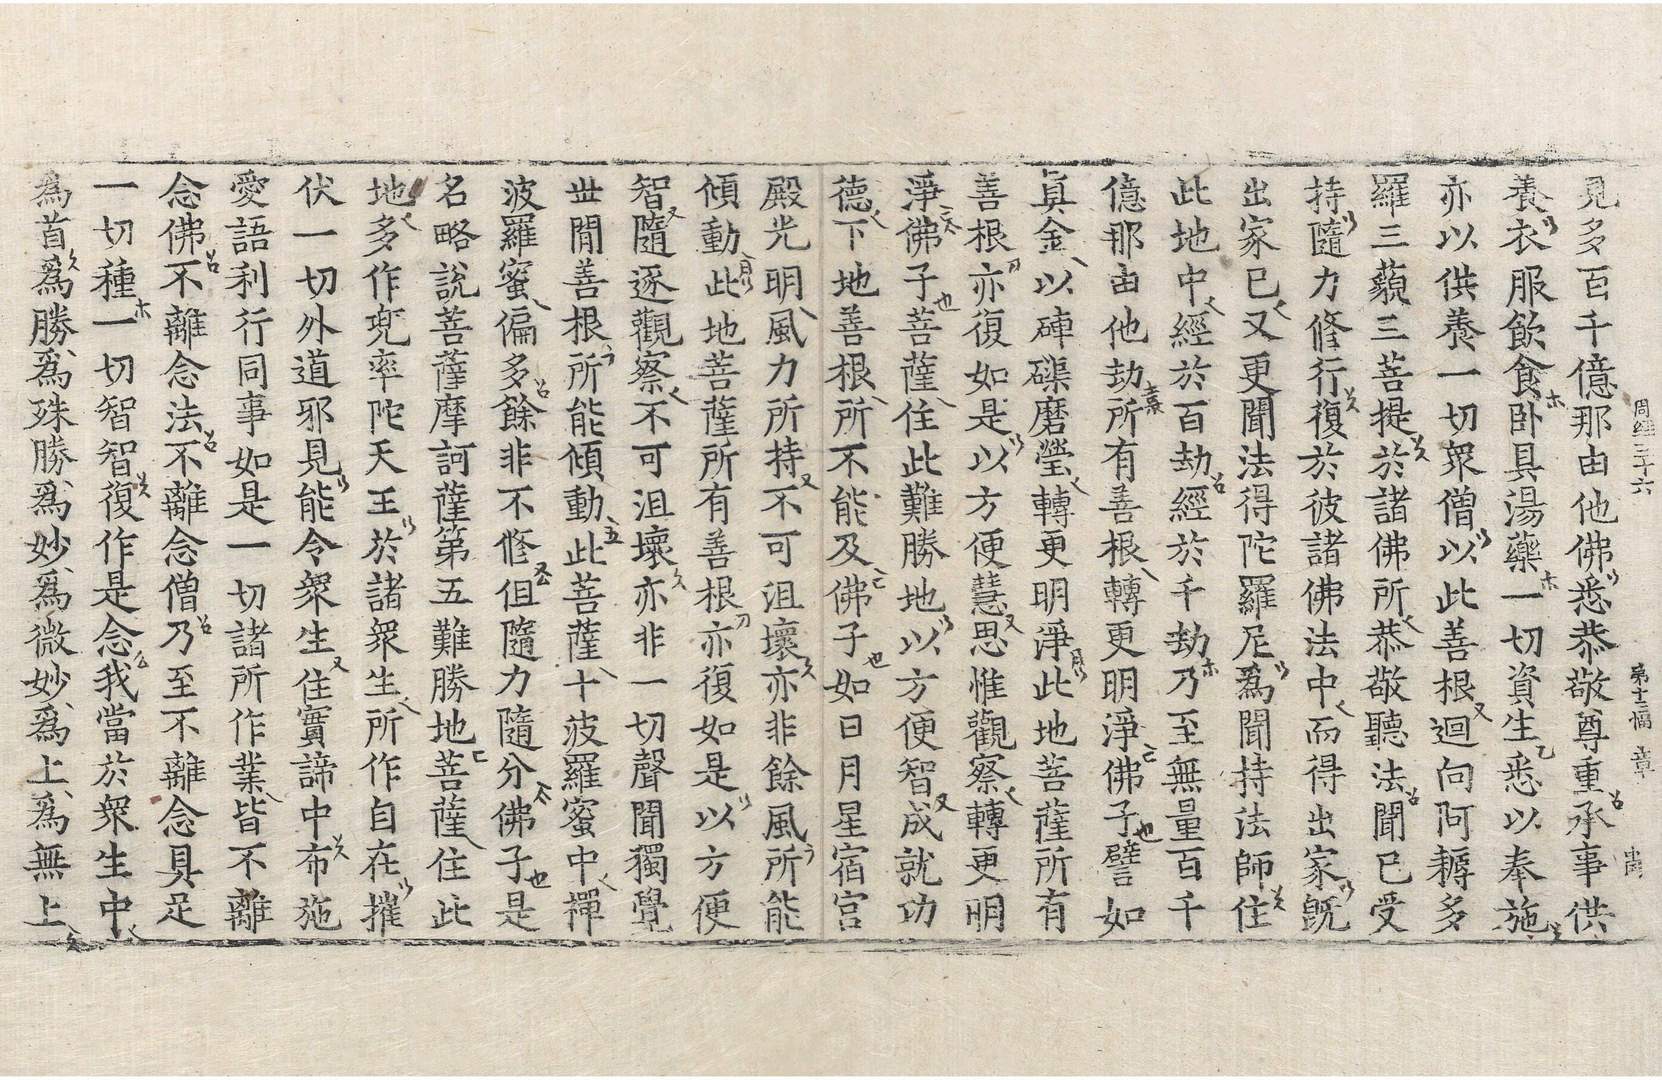 周經三十六 第十二幅 章
見多百千億那由他佛悉恭敬尊重承事供
養衣服飲食臥具湯藥一切資生悉以奉施
亦以供養一切眾僧以此善根迴向阿耨多
羅三藐三菩提於諸佛所恭敬聽法聞已受
持隨力修行復於彼諸佛法中而得出家既
出家已又更聞法得陀羅尼爲聞持法師住
此地中經於百劫經於千劫乃至無量百千
億那由他劫所有善根轉更明淨佛子譬如
真金以硨磲磨瑩轉更明淨此地菩薩所有
善根亦復如是以方便慧思惟觀察轉更明
淨佛子菩薩住此難勝地以方便智成就功
德下地善根所不能及佛子如日月星宿宮
殿光明風力所持不可沮壞亦非餘風所能
傾動此地菩薩所有善根亦復如是以方便
智隨逐觀察不可沮壞亦非一切聲聞獨覺
世間善根所能傾動此菩薩十波羅蜜中禪
波羅蜜偏多餘非不修但隨力隨分佛子是
名略說菩薩摩訶薩第五難勝地菩薩住此
地多作兜率陀天王於諸眾生所作自在摧
伏一切外道邪見能令眾生住實諦中布施
愛語利行同事如是一切諸所作業皆不離
念佛不離念法不離念僧乃至不離念具足
一切種一切智智復作是念我當於眾生中
爲首爲勝爲殊勝爲妙爲微妙爲上爲無上